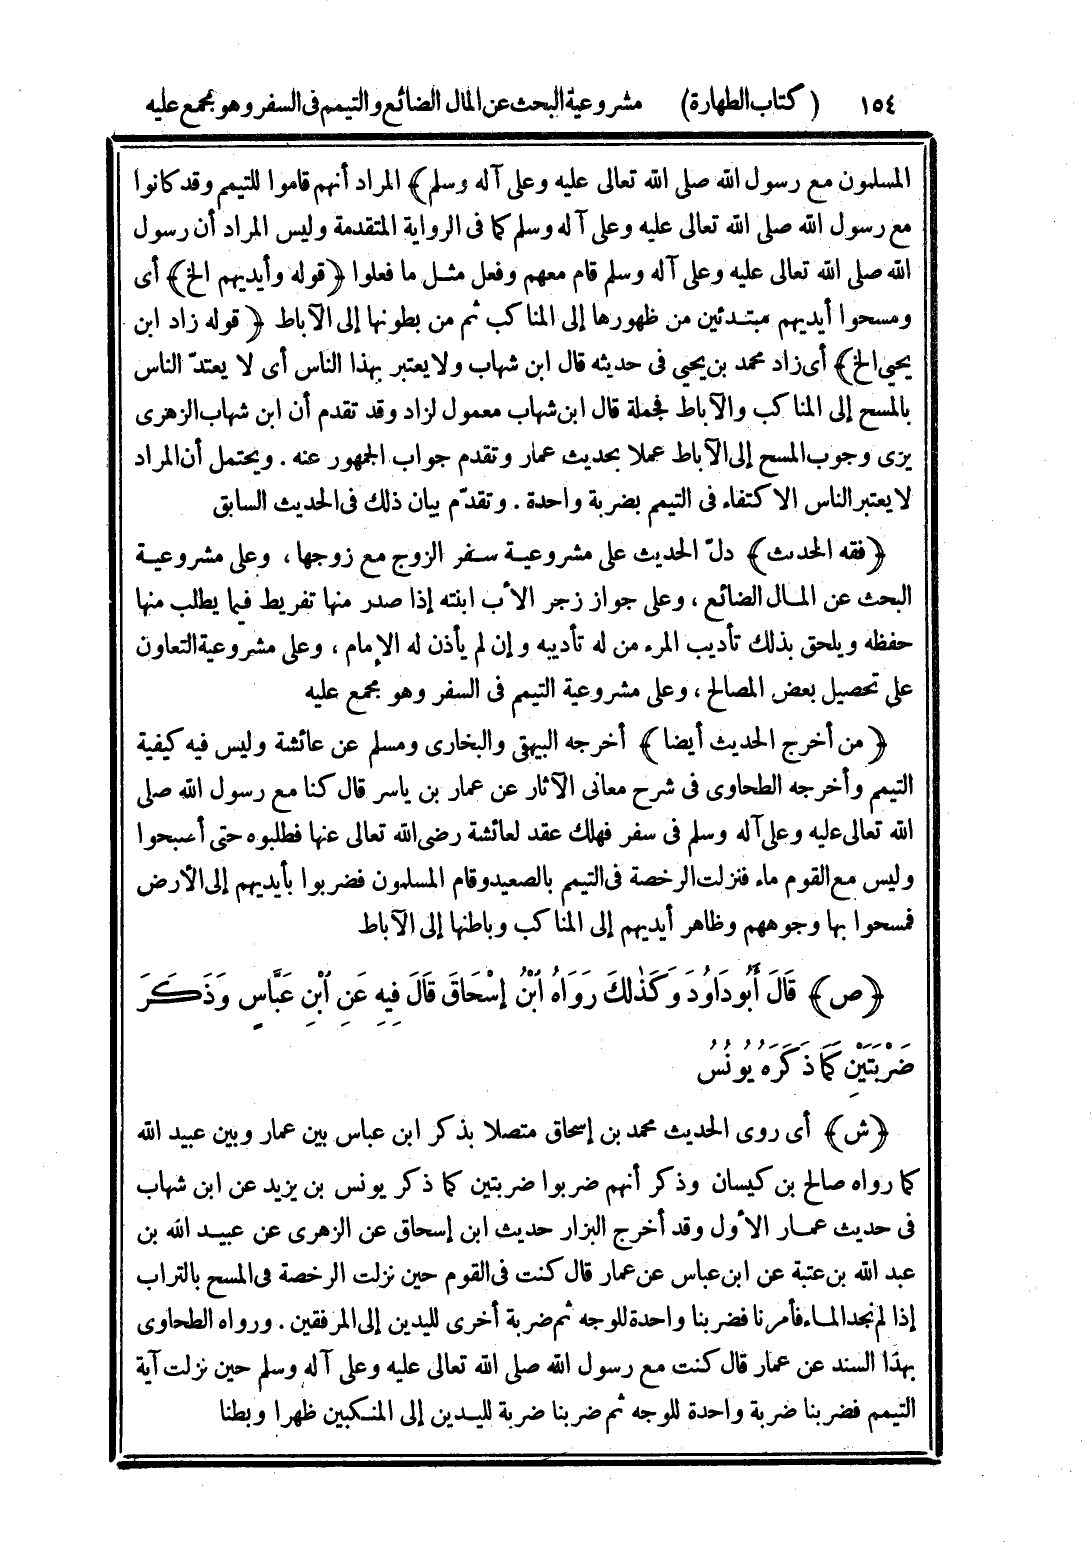 ١٥٤ (كتاب الطهارة) مشروعية البحث عن المال الضائع والتيمم فى السفر وهو مجمع عليه
المسلمون مع رسول الله صلى الله تعالى عليه وعلى آله وسلم﴾ المراد أنهم قاموا للتيمم وقد كانوا
مع رسول الله صلى الله تعالى عليه وعلى آله وسلم كما فى الرواية المتقدمة وليس المراد أن رسول
الله صلى الله تعالى عليه وعلى آله وسلم قام معهم وفعل مثل ما فعلوا ﴿قوله وأيديهم الخ﴾ أى
ومسحوا أيديهم مبتدئين من ظهورها إلى المناكب ثم من بطونها إلى الآباط ﴿قوله زاد ابن
يحيى الخ﴾ أى زاد محمد بن يحيى فى حديثه قال ابن شهاب ولا يعتبر بهذا الناس أى لا يعتدّ الناس
بالمسح إلى المناكب والآباط فجملة قال ابن شهاب معمول لزاد وقد تقدم أن ابن شهاب الزهرى
يرى وجوب المسح إلى الآباط عملا بحديث عمار وتقدم جواب الجمهور عنه . ويحتمل أن المراد
لا يعتبر الناس الاكتفاء فى التيمم بضربة واحدة . وتقدّم بيان ذلك فى الحديث السابق
﴿فقه الحديث﴾ دلّ الحديث على مشروعية سفر الزوج مع زوجها ، وعلى مشروعية
البحث عن المال الضائع ، وعلى جواز زجر الأب ابنته إذا صدر منها تفريط فيما يطلب منها
حفظه ويلحق بذلك تأديب المرء من له تأديبه وإن لم يأذن له الإمام ، وعلى مشروعية التعاون
على تحصيل بعض المصالح ، وعلى مشروعية التيمم فى السفر وهو مجمع عليه
﴿من أخرج الحديث أيضا﴾ أخرجه البيهقى والبخارى ومسلم عن عائشة وليس فيه كيفية
التيمم وأخرجه الطحاوى فى شرح معانى الآثار عن عمار بن ياسر قال كنا مع رسول الله صلى
الله تعالى عليه وعلى آله وسلم فى سفر فهلك عقد لعائشة رضى الله تعالى عنها فطلبوه حتى أصبحوا
وليس مع القوم ماء فنزلت الرخصة فى التيمم بالصعيد وقام المسلمون فضربوا بأيديهم إلى الأرض
فمسحوا بها وجوههم وظاهر أيديهم إلى المناكب وباطنها إلى الآباط
﴿ص﴾ قَالَ أَبُو دَاوُدَ وَكَذٰلِكَ رَوَاهُ ابْنُ إِسْحَاقَ قَالَ فِيهِ عَنِ ابْنِ عَبَّاسٍ وَذَكَرَ
ضَرْبَتَيْنِ كَمَا ذَكَرَهُ يُونُسُ
﴿ش﴾ أى روى الحديث محمد بن إسحاق متصلا بذكر ابن عباس بين عمار وبين عبيد الله
كما رواه صالح بن كيسان وذكر أنهم ضربوا ضربتين كما ذكر يونس بن يزيد عن ابن شهاب
فى حديث عمار الأول وقد أخرج البزار حديث ابن إسحاق عن الزهرى عن عبيد الله بن
عبد الله بن عتبة عن ابن عباس عن عمار قال كنت فى القوم حين نزلت الرخصة فى المسح بالتراب
إذا لم نجد الماء فأمرنا فضربنا واحدة للوجه ثم ضربة أخرى لليدين إلى المرفقين . ورواه الطحاوى
بهذا السند عن عمار قال كنت مع رسول الله صلى الله تعالى عليه وعلى آله وسلم حين نزلت آية
التيمم فضربنا ضربة واحدة للوجه ثم ضربنا ضربة لليدين إلى المنكبين ظهرا وبطنا